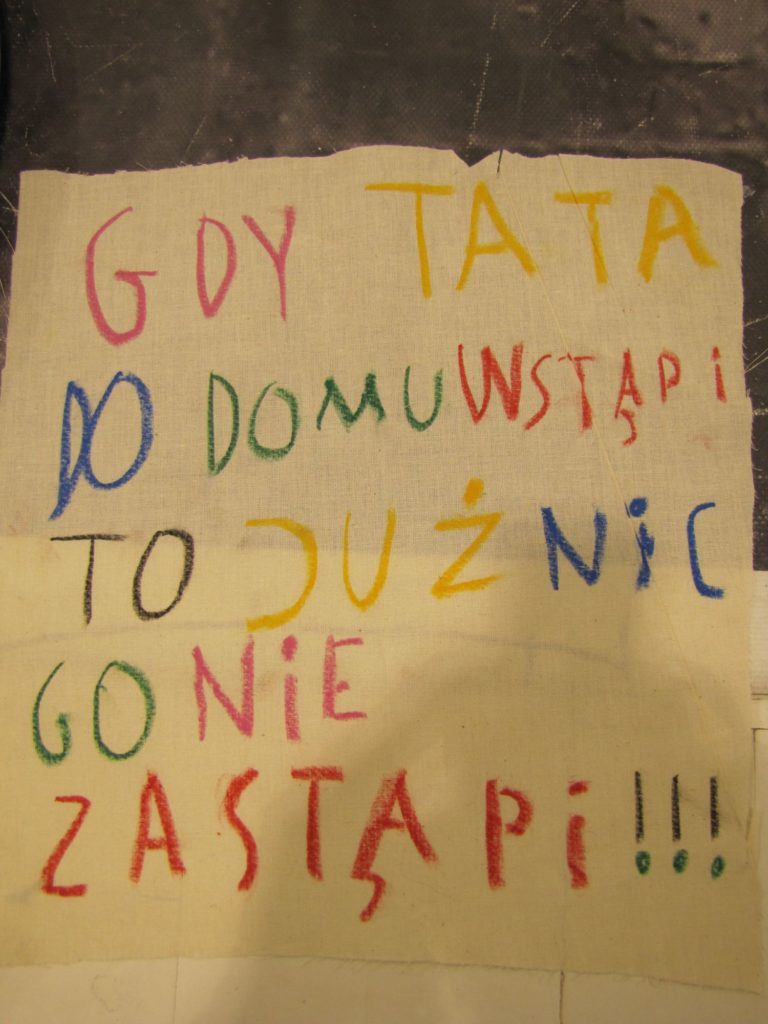 GDY TATA
DO DOMU WSTĄPi
TO JUŻ NiC
GO NiE
ZASTĄPi!!!